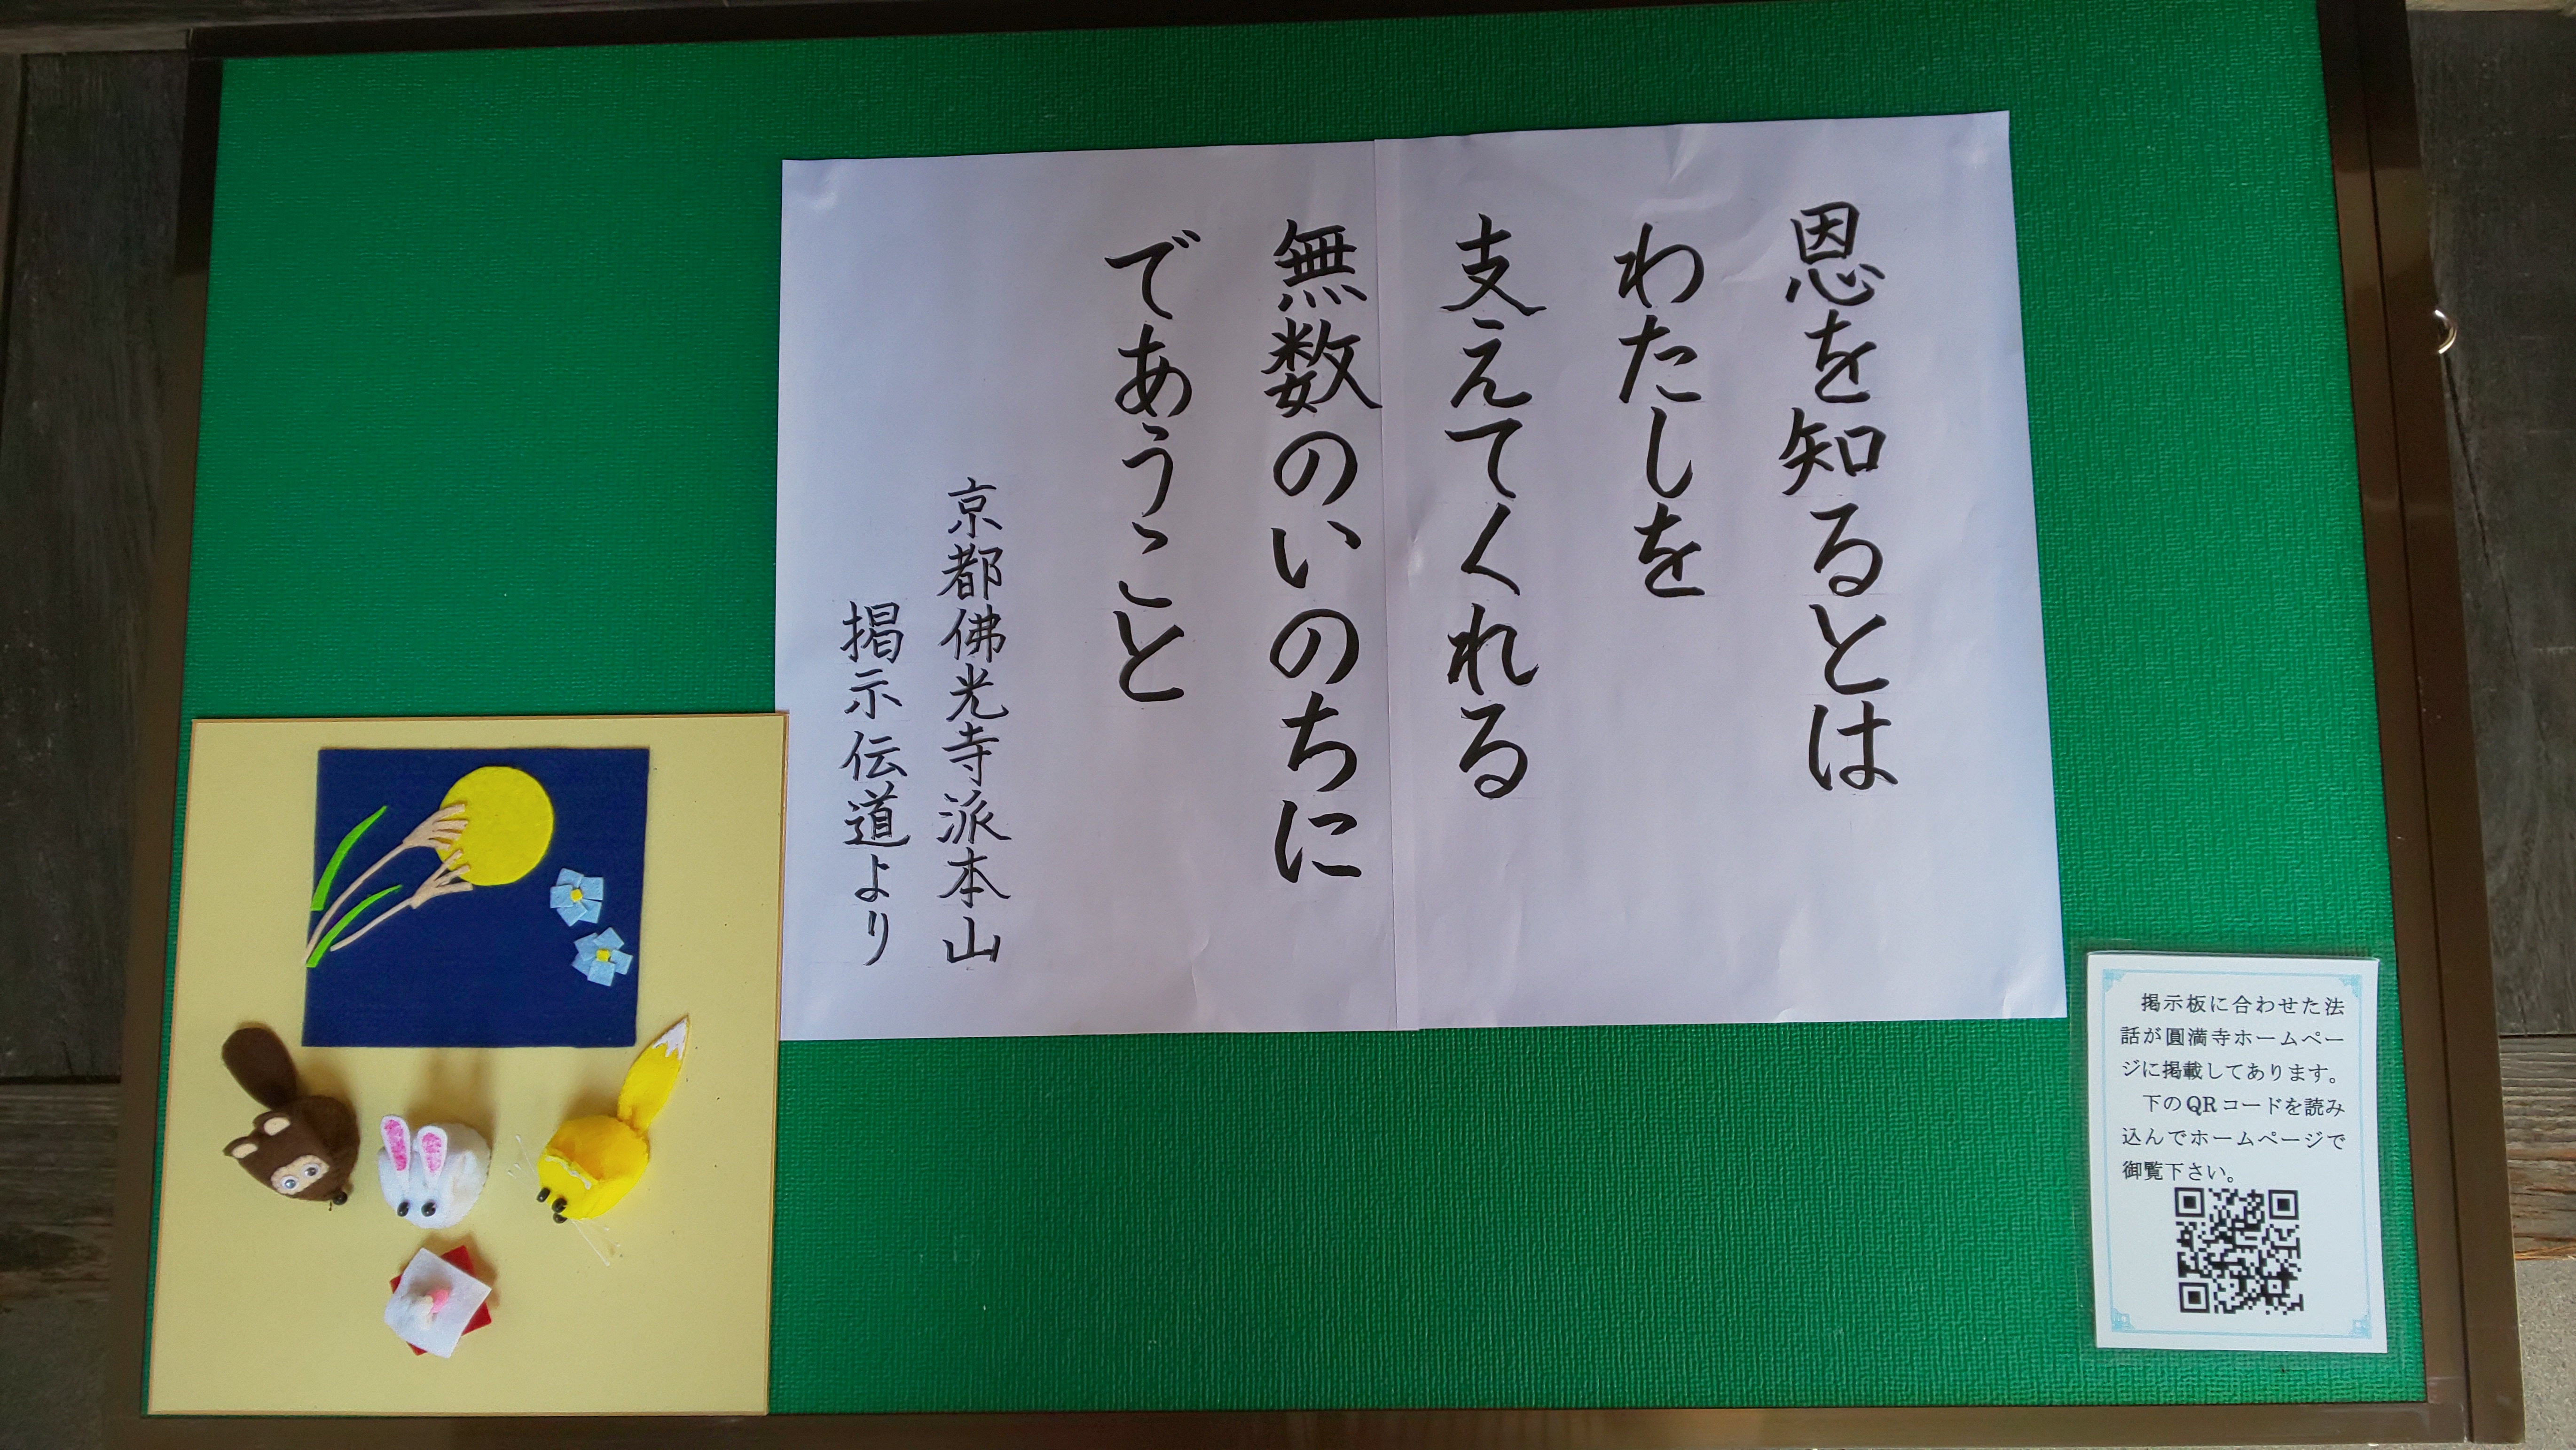 恩を知るとは
わたしを
支えてくれる
無数のいのちに
であうこと
京都佛光寺派本山
掲示伝道より
掲示板に合わせた法
話が圓満寺ホームペー
ジに掲載してあります。
下のQRコードを読み
込んでホームページで
御覧下さい。